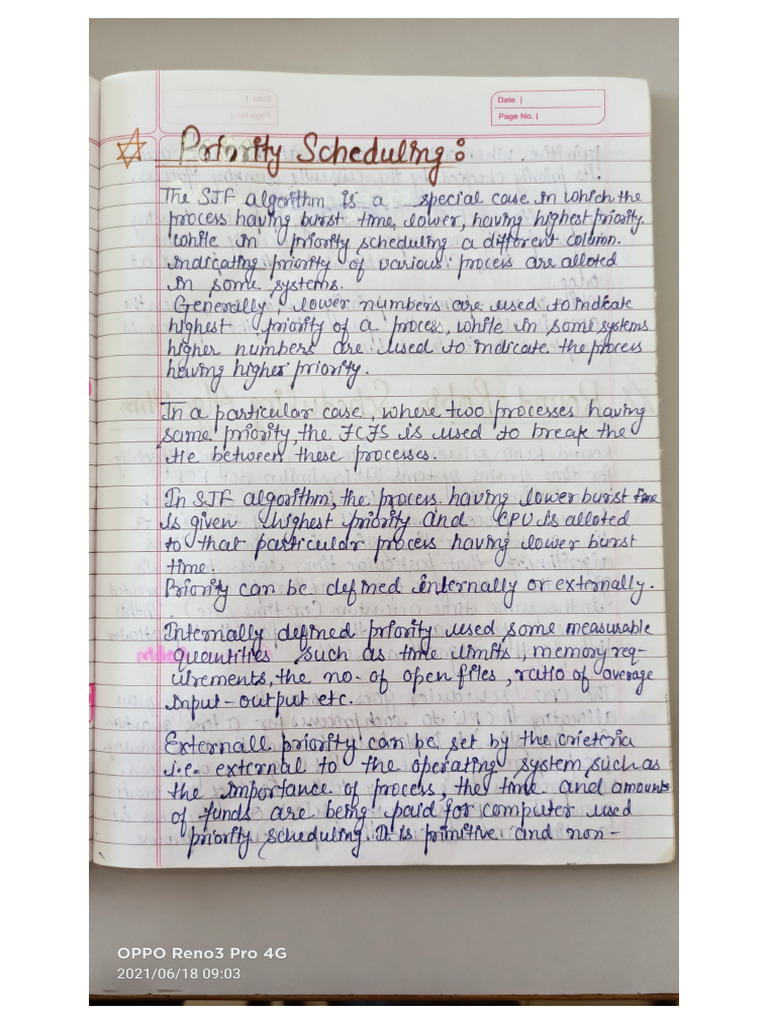 Date |
Page No. |
Priority Scheduling :
The SJF algorithm is a special case in which the
process having burst time, lower, having highest priority.
while in priority scheduling a different column.
indicating priority of various process are alloted
in some systems.
Generally, lower numbers are used to indicate
highest priority of a process, while in some systems
higher numbers are used to indicate the process
having higher priority.
In a particular case, where two processes having
same priority, the FCFS is used to break the
tie between these processes.
In SJF algorithm, the process having lower burst time
is given highest priority and CPU is alloted
to that particular process having lower burst
time.
Priority can be defined internally or externally.
Internally defined priority used some measurable
quantities such as time limits, memory req-
uirements, the no. of open files, ratio of average
input-output etc.
Externall priority can be set by the crieteria
i.e. external to the operating system, such as
the importance of process, the time and amounts
of funds are being paid for computer used
priority scheduling. It is primitive and non-
OPPO Reno3 Pro 4G
2021/06/18 09:03